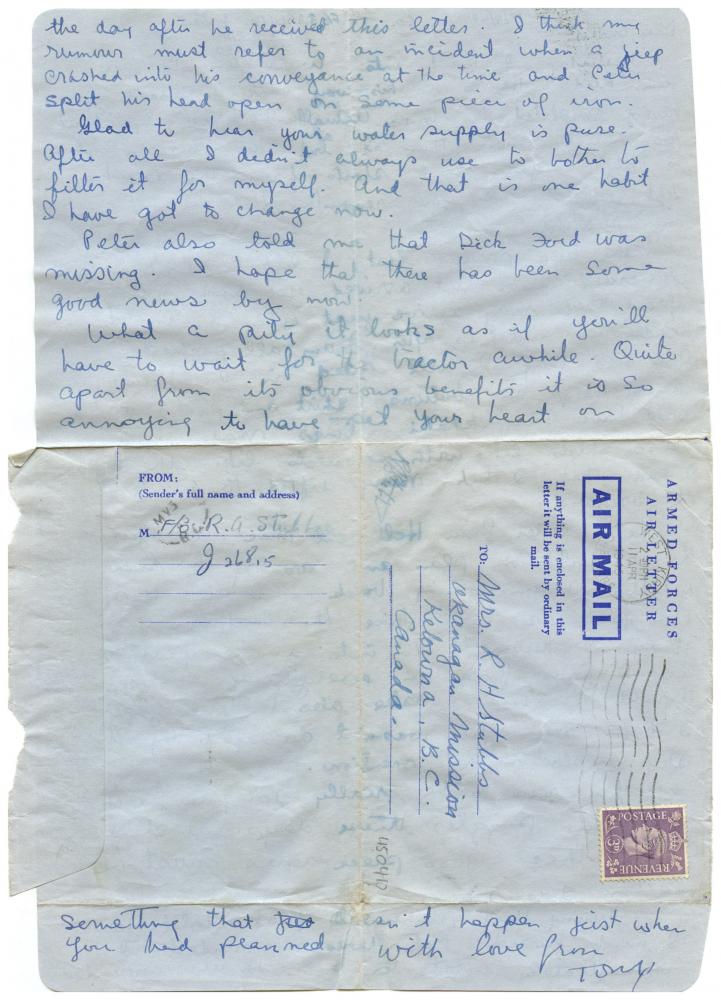 the day after he received this letter. I think my
rumour must refer to an incident when a jeep
crashed into his conveyance at the time and Peter
split his head open on some piece of iron.
Glad to hear your water supply is pure.
After all I didn't always use to bother to
filter it for myself. And that is one habit
I have got to change now.
Peter also told me that Dick Ford was
missing. I hope that there has been some
good news by now.
What a pity it looks as if you'll
have to wait for the tractor awhile. Quite
apart from its obvious benefits it is so
annoying to have set your heart on
FROM:
(Sender's full name and address)
M F/O R. A. Stubbs
J 26815
ARMED FORCES
AIR LETTER
AIR MAIL
If anything is enclosed in this
letter it will be sent by ordinary
mail.
TO: Mrs. R. H Stubbs
Okanagan Mission
Kelowna, B.C.
Canada.
11 APR
POSTAGE
3D
REVENUE
450410
something that doesn't happen just when
you had planned with love from
Tony